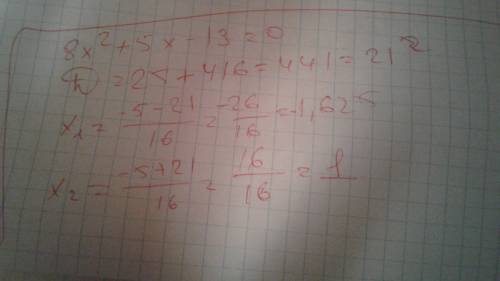 8x² + 5x - 13 = 0
D = 25 + 416 = 441 = 21²
x₁ = \frac{-5-21}{16} = \frac{-26}{16} = -1,625
x₂ = \frac{-5+21}{16} = \frac{16}{16} = 1